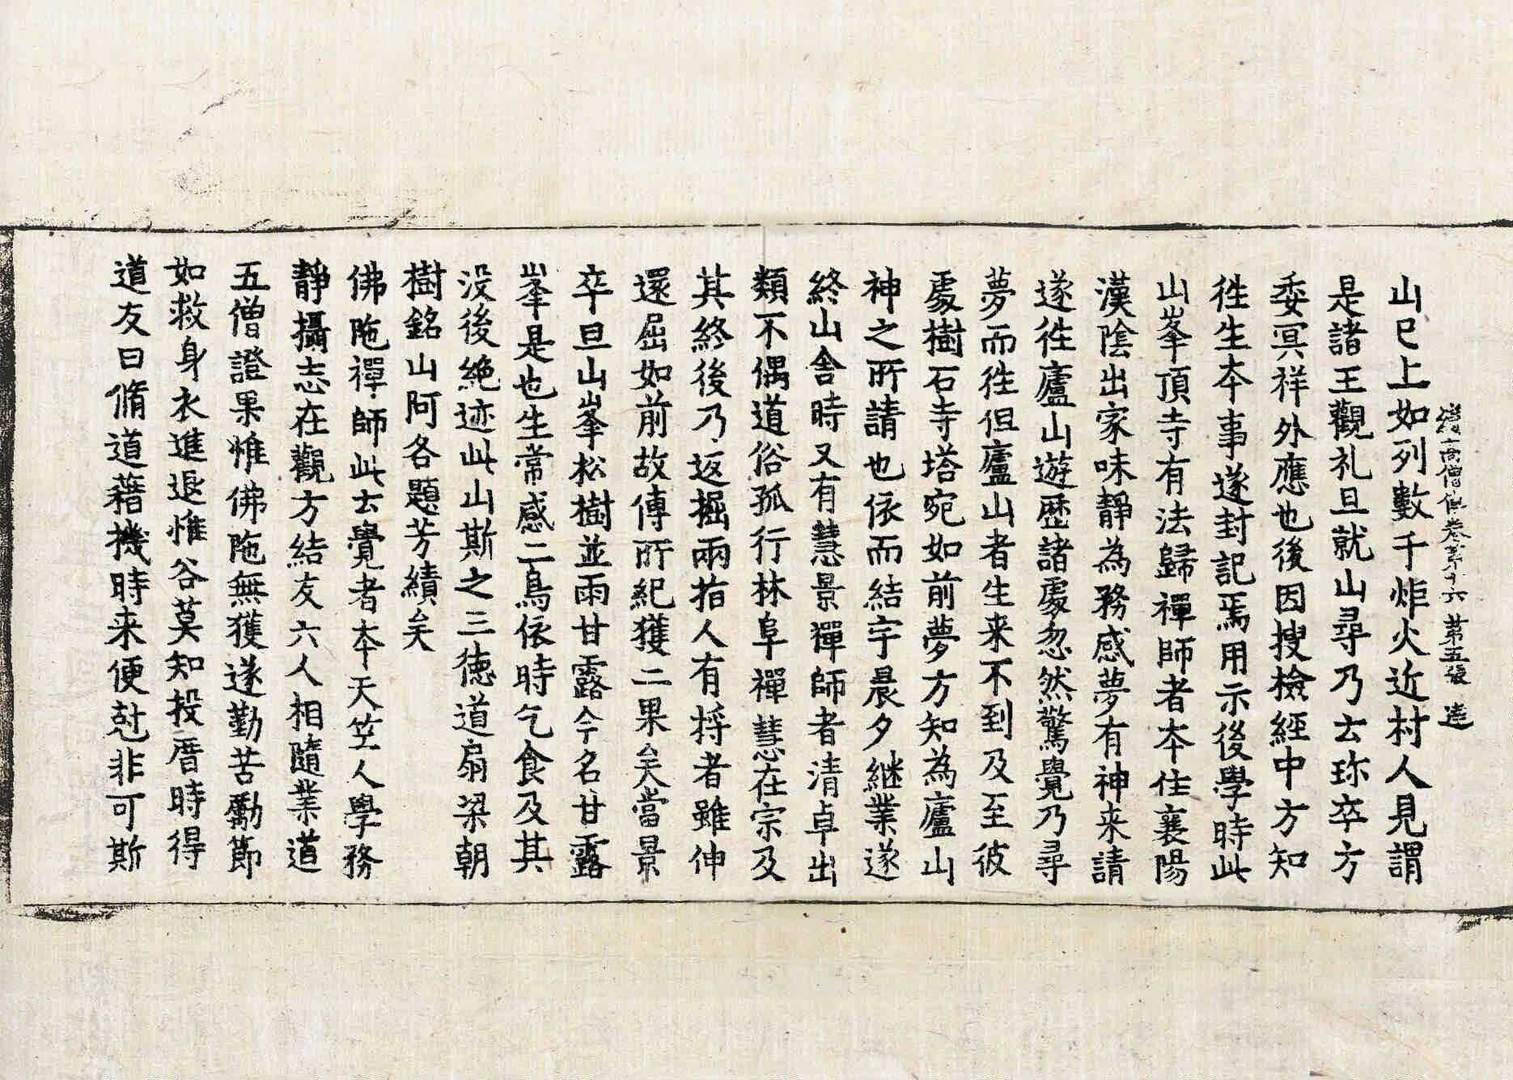 續高僧傳卷第十六 第五張 造
山已上如列數千炬火近村人見謂
是諸王觀礼旦就山尋乃云珎卒方
委冥祥外應也後因搜檢經中方知
徃生夲事遂封記焉用示後學時此
山峯頂寺有法歸禪師者夲住襄陽
漢陰出家味靜為務感夢有神来請
遂徃廬山遊歷諸處忽然驚覺乃尋
夢而徃但廬山者生来不到及至彼
處樹石寺塔宛如前夢方知為廬山
神之所請也依而結宇晨夕継業遂
終山舍時又有慧景禪師者清卓出
類不偶道俗孤行林阜禪慧在宗及
其終後乃返掘兩指人有捋者雖伸
還屈如前故傳所紀獲二果矣當景
卒旦山峯松樹並雨甘露今名甘露
峯是也生常感二鳥依時乞食及其
没後絶迹此山斯之三德道扇梁朝
樹銘山阿各題芳績矣
佛陁禪師此云覺者夲天笁人學務
靜攝志在觀方結友六人相隨業道
五僧證果惟佛陁無獲遂勤苦勵節
如救身衣進退惟谷莫知投厝時得
道友曰脩道藉機時来便尅非可斯